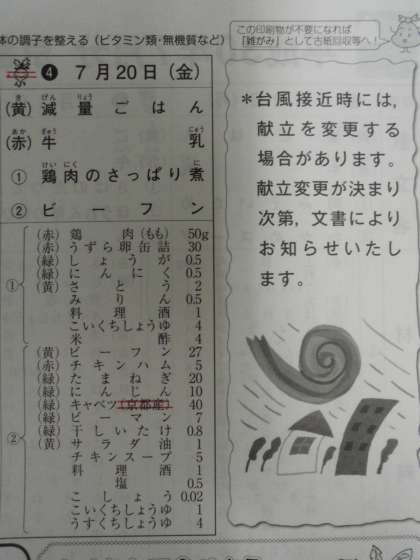 体の調子を整える（ビタミン類・無機質など）
この印刷物が不要になれば
「雑がみ」として古紙回収等へ！
❹ 7月20日（金）
（黄）減量ごはん
（赤）牛乳
① 鶏肉のさっぱり煮
② ビーフン
①
（赤）鶏肉（もも） 50g
（赤）うずら卵缶詰 30
（緑）しょうが 0.5
（緑）にんにく 0.5
（黄）さとう 2
みりん 0.5
料理酒 1
こいくちしょうゆ 4
米酢 4
②
（黄）ビーフン 27
（赤）チキンハム 5
（緑）たまねぎ 20
（緑）にんじん 10
（緑）キャベツ（京都産） 40
（緑）ピーマン 7
（緑）干ししいたけ 0.8
（黄）サラダ油 1
チキンスープ 5
料理酒 1
塩 0.5
こしょう 0.02
こいくちしょうゆ 1
うすくちしょうゆ 4
＊台風接近時には，
献立を変更する
場合があります。
献立変更が決まり
次第，文書により
お知らせいたし
ます。